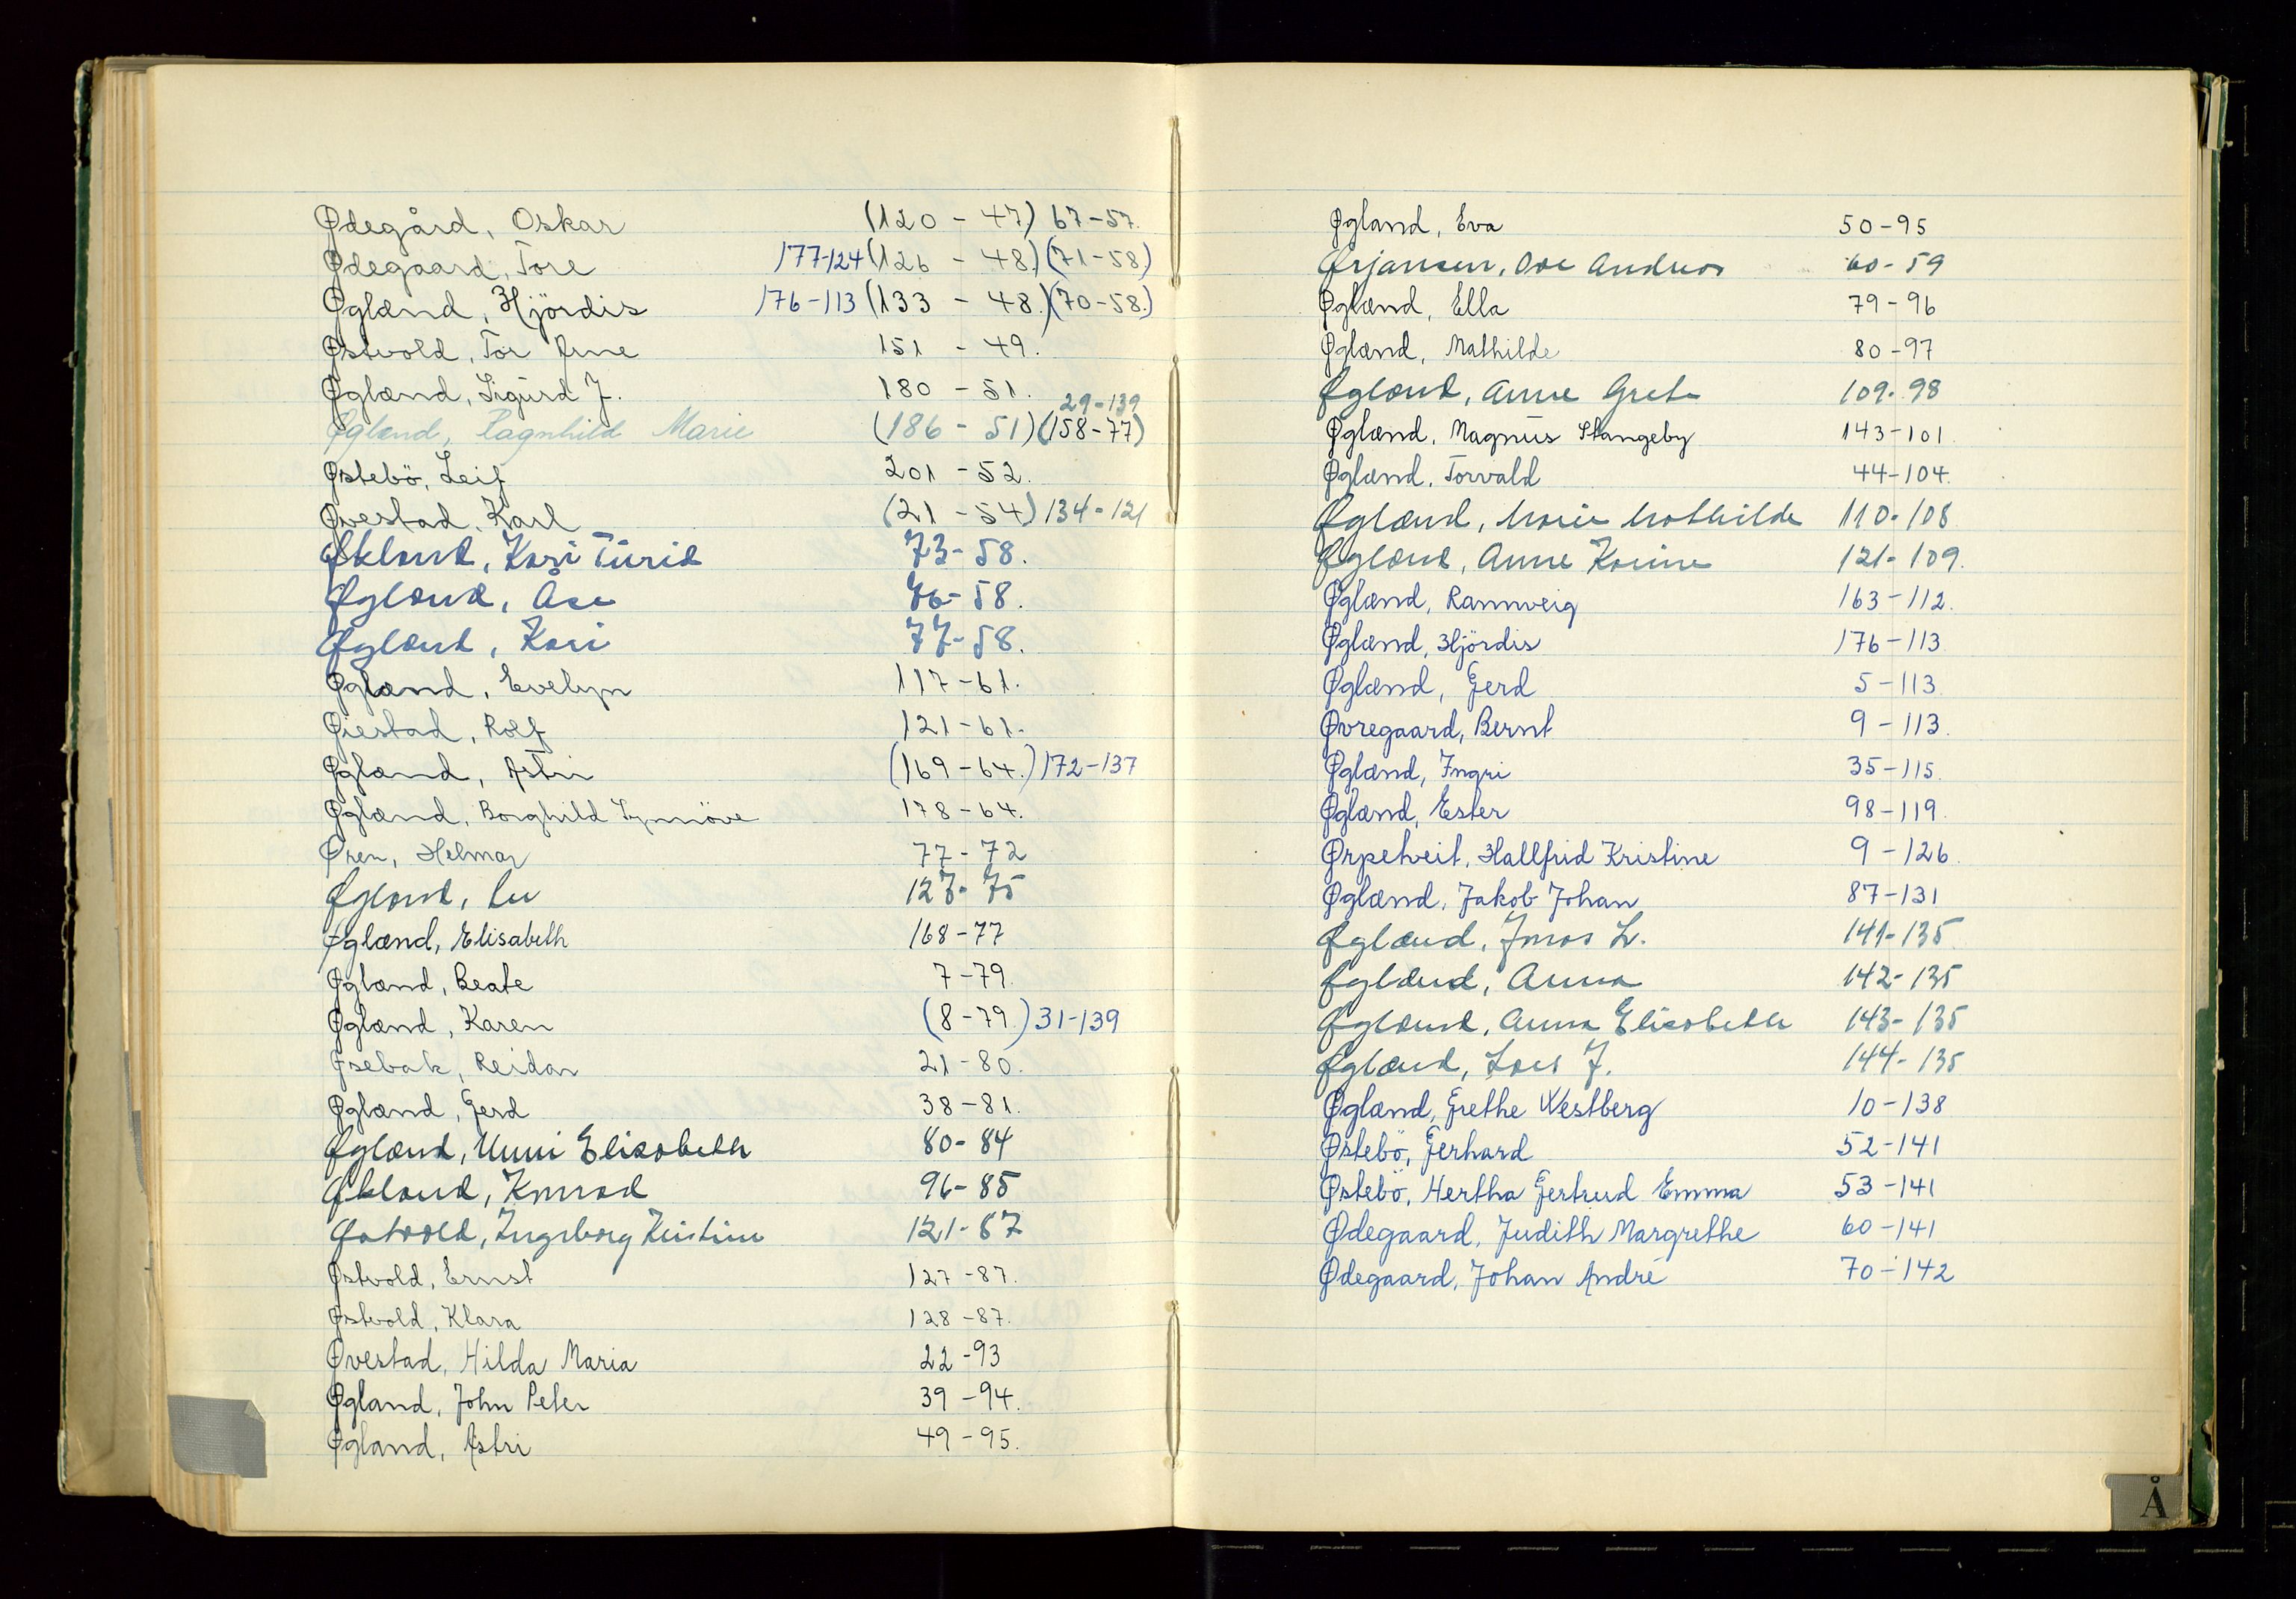 Ødegård, Oskar (120 - 47) 67-57.
Ødegaard, Tore 177-124 (126 - 48.) (71-58.)
Øglænd, Hjördis 176-113 (133 - 48.) (70-58.)
Østvold, Tor Arne 151 - 49.
Øglænd, Sigurd J. 180 - 51.
29-139
Øglænd, Ragnhild Marie (186 - 51) (158-77)
Østebö, Leif 201 - 52.
Øvestad, Karl (21 - 54) 134-121
Økland, Kari Turid 73-58.
Øglænd, Åse 76-58.
Øglænd, Kari 77-58.
Øglænd, Evelyn 117-61.
Øiestad, Rolf 121-61.
Øglænd, Astri (169-64.) 172-137
Øglænd, Borghild Synnöve 178-64.
Øren, Helmar 77-72
Øglænd, 127-75
Øglænd, Elisabeth 168-77
Øglænd, Beate 7-79.
Øglænd, Karen (8-79.) 31-139
Øsebak, Reidar 21-80.
Øglænd, Gerd 38-81.
Øglænd, Unni Elisabeth 80-84
Økland, Konrad 96-85
Østvold, Ingeborg Kristine 121-87
Østvold, Ernst 127-87.
Østvold, Klara 128-87.
Øvestad, Hilda Maria 22-93
Øgland, John Peter 39-94.
Øgland, Astri 49-95.
Øgland, Eva 50-95
Ørjansen, Ove Andreas 60-59
Øglænd, Ella 79-96
Øglænd, Mathilde 80-97
Øglænd, Anne Grete 109-98
Øglænd, Magnus Stangeby 143-101
Øglænd, Torvald 44-104.
Øglænd, Marie Mathilde 110-108
Øglænd, Anne Karine 121-109.
Øglænd, Rannveig 163-112.
Øglænd, Hjördis 176-113
Øglænd, Gerd 5-113
Øvregaard, Bernt 9-113.
Øglænd, Ingri 35-115.
Øglænd, Ester 98-119.
Ørpetveit, Hallfrid Kristine 9-126.
Øglænd, Jakob Johan 87-131
Øglænd, Jonas L. 141-135
Øglænd, Anna 142-135
Øglænd, Anna Elisabeth 143-135
Øglænd, Lars J. 144-135
Øglænd, Grethe Westberg 10-138
Østebö, Gerhard 52-141
Østebö, Hertha Gertrud Emma 53-141
Ødegaard, Judith Margrethe 60-141
Ødegaard, Johan André 70-142
Å